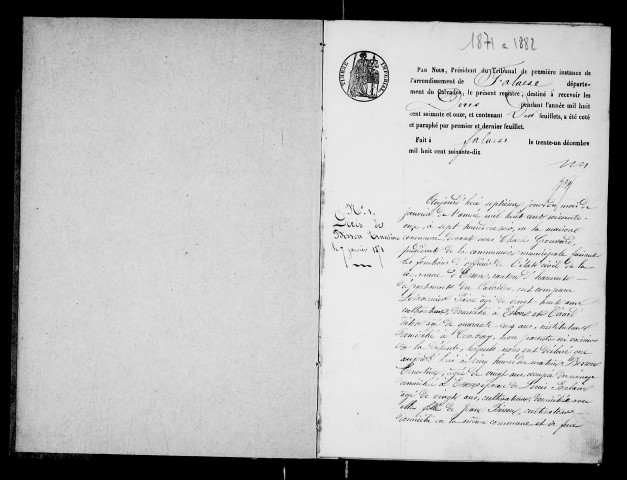 1871 à 1882
TIMBRE IMPÉRIAL
Par Nous, Président du Tribunal de première instance de
l'arrondissement de Falaise départe-
ment du Calvados, le présent registre, destiné à recevoir les
Décès pendant l'année mil huit
cent soixante et onze, et contenant Dix feuillets, a été coté
et paraphé par premier et dernier feuillet.
Fait à Falaise le trente-un décembre
mil huit cent soixante-dix.
N° 1.
Décès de
Besson Ernestine
le 7 janvier 1871
Aujourd'hui septième jour du mois de
janvier de l'année mil huit cent soixante-
onze, à sept heures du soir, en la maison
commune, devant nous Charles
président de la commission municipale faisant
les fonctions d'officier de l'état civil de la
commune d'Esson, canton d'Harcourt
département du Calvados, ont comparu
Pierre âgé de vingt huit ans
cultivateur, domicilié à Esson et David
Victor âgé de quarante cinq ans, instituteur
domicilié à non parents ni voisins
de la défunte, lesquels nous ont déclaré que
aujourd'hui à cinq heures du matin, Besson
Ernestine, âgée de vingt ans, occupée du ménage
domiciliée à Esson épouse de Louis
âgé de vingt ans, cultivateur, domicilié
elle fille de Jean Besson, cultivateur
domicilié en la même commune et de feue